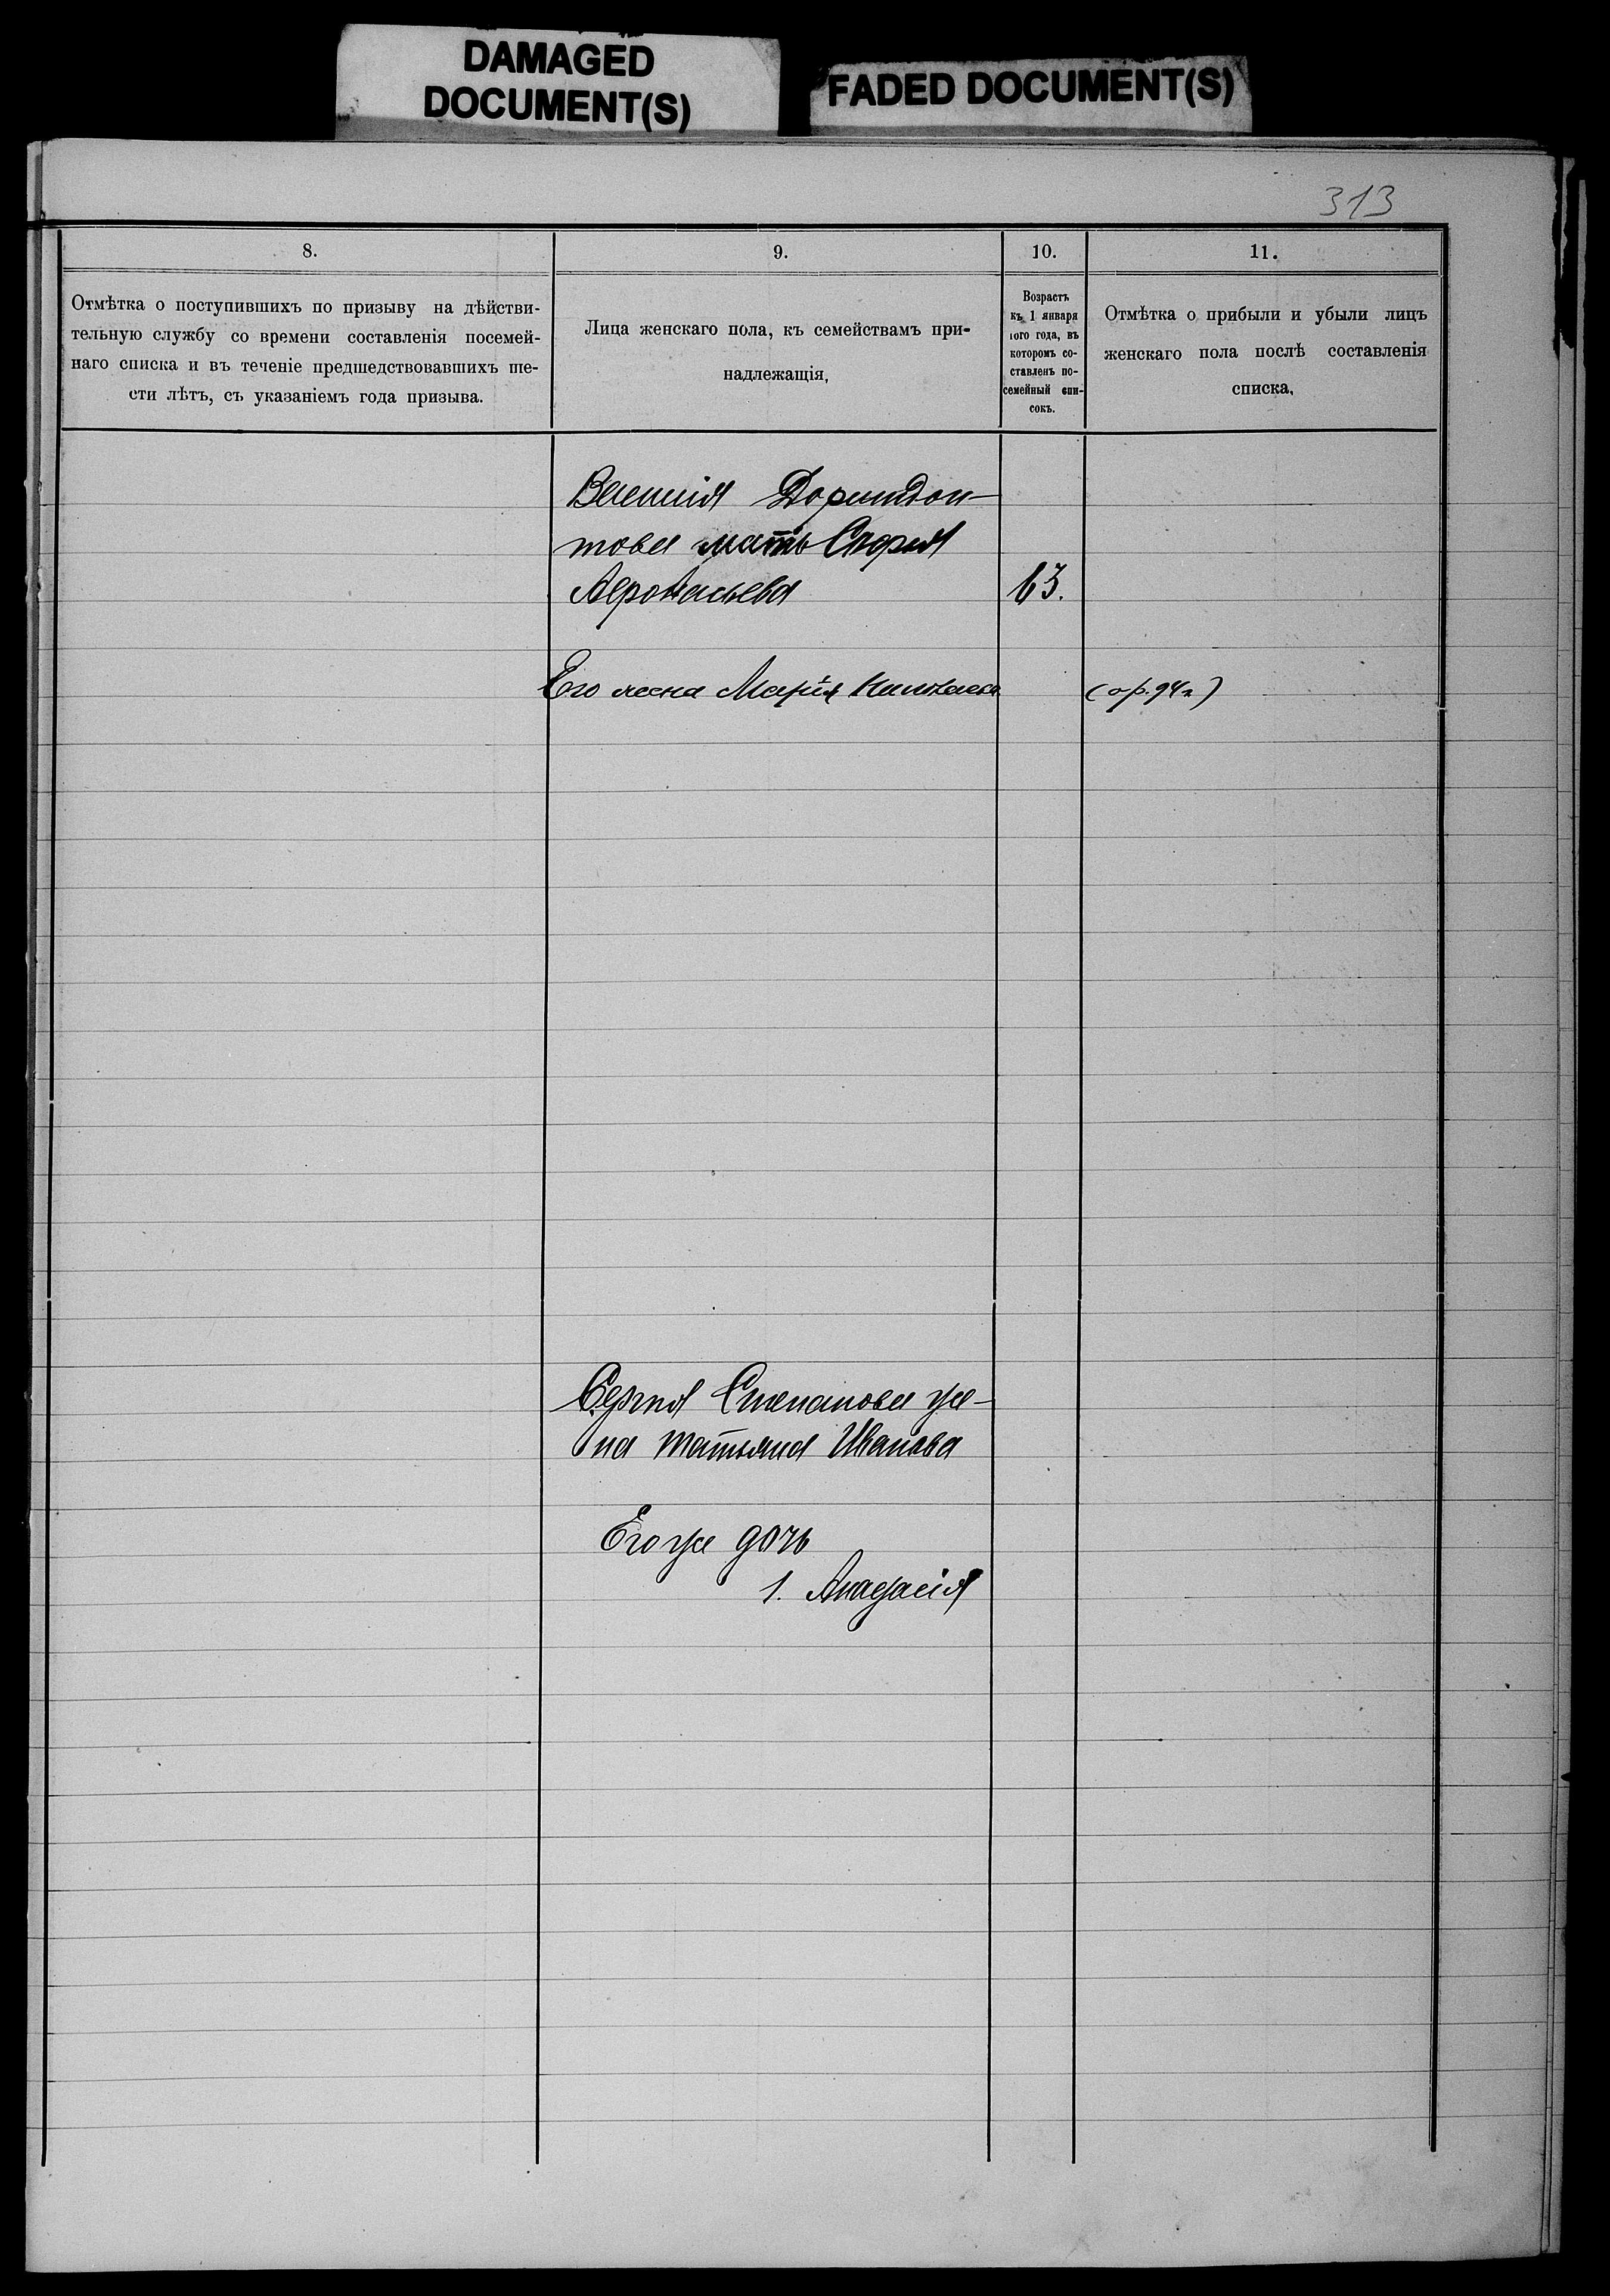 DAMAGED
DOCUMENT(S)
FADED DOCUMENT(S)
313
8.
9.
10.
11.
Отмѣтка о поступившихъ по призыву на дѣйстви-
тельную службу со времени составленія посемей-
наго списка и въ теченіе предшедствовавшихъ ше-
сти лѣтъ, съ указаніемъ года призыва.
Лица женскаго пола, къ семействамъ при-
надлежащія,
Возрастъ
къ 1 января
того года, въ
которомъ со-
ставленъ по-
семейный спи-
сокъ.
Отмѣтка о прибыли и убыли лицъ
женскаго пола послѣ составленія
списка,
Дормидон-
това мать Софья
Афонасьева 63.
Его жена Марія Николаева
Сергѣя Степанова же-
на Татьяна Иванова
Его же дочь
1.